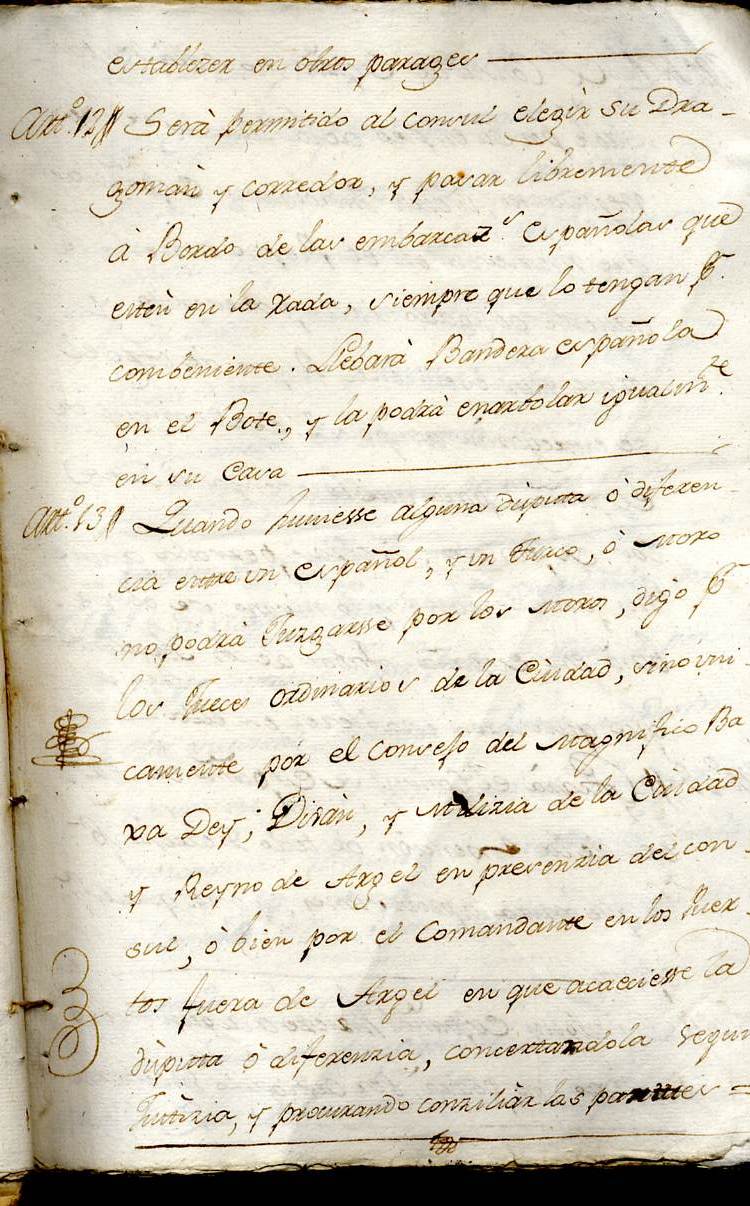 establezer en otros parages
Artº. 12 Será permitido al Consul elegir su Dra-
goman y corredor, y pasar libremente
à Bordo de las embarcaz.s Españolas que
esten en la Rada, siempre que lo tengan p.r
combeniente. Llebarà Bandera española
en el Bote, y la podrà enarbolar igualm.te
en su Casa
Artº. 13 Quando huviesse alguna disputa ò diferen-
cia entre un español, y un Turco, ò Moro
no podrà Juzgarsse por los Moros, digo p.r
los Jueces ordinarios de la Ciudad, sino uni-
camente por el Consejo del Magnifico Ba
xa Dey, Divàn, y Milizia de la Ciudad
y Reyno de Argel en presenzia del con-
sul, ò bien por el Comandante en los Puer
tos fuera de Argel en que acaeciesse la
disputta ò diferenzia, concertandola segun
Justizia, y procurando conziliar las partes =